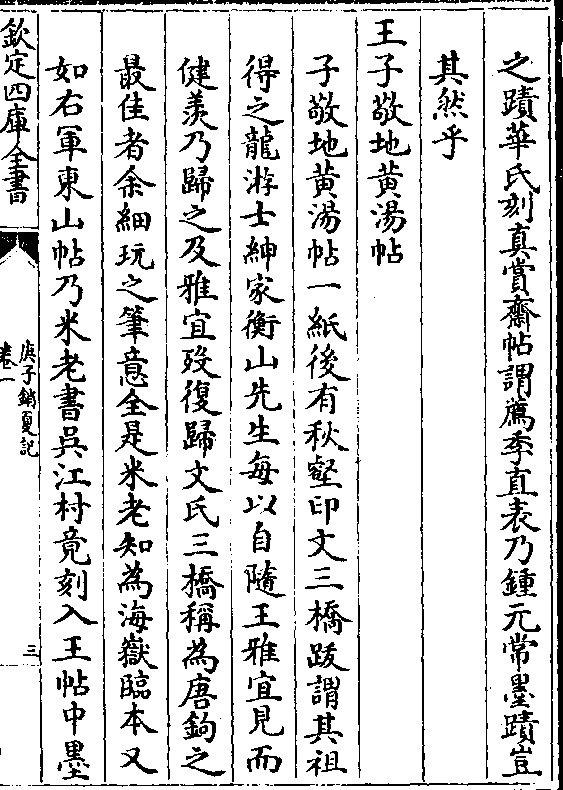 之蹟華氏刻真賞齋帖謂薦季直表乃鍾元常墨蹟豈
其然乎
王子敬地黄湯帖
子敬地黄湯帖一紙後有秋壑印文三橋跋謂其祖
得之龍游士紳家衡山先生每以自隨王雅宜見而
健羡乃歸之及雅宜殁復歸文氏三橋稱為唐鉤之
最佳者余細玩之筆意全是米老知為海嶽臨本又
如右軍東山帖乃米老書吳江村竟刻入王帖中墨
欽定四庫全書
庚子銷夏記
卷一
三